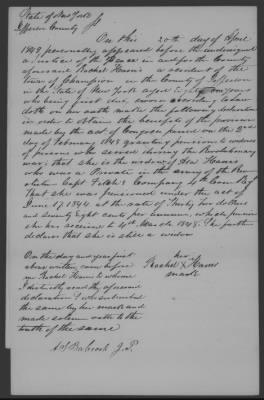 State of New York
Jefferson County
On this 20th day of April
1848 personally appeared before the undersigned
a Justice of the Peace in and for the County
aforesaid Rachel Harris a resident of the
Town of Champion in the County of Jefferson
in the State of New York aged Eighty one years
who being first duly sworn according to law
doth on her oath make the following declaration
in order to obtain the benefits of the provision
made by the act of Congress passed on the 2nd
day of February 1848 granting pensions to widows
of persons who served during the Revolutionary
war; that she is the widow of Harris
who was a Private in the army of the Revo
lution Capt Company 4th Con Regt
That she was pensioned under the act of
June 17 1844 at the rate of Thirty two dollars
and seventy eight cents per annum, which pension
she has received to 4th March 1848. She further
declares that she is still a widow
On the day and year first
above written came before
me Rachel Harris to whom
I distinctly read the aforesaid
declaration & who subscribed
the same by her mark and
made solemn oath to the
truth of the same
her
Rachel X Harris
mark
A S Babcock J.P.